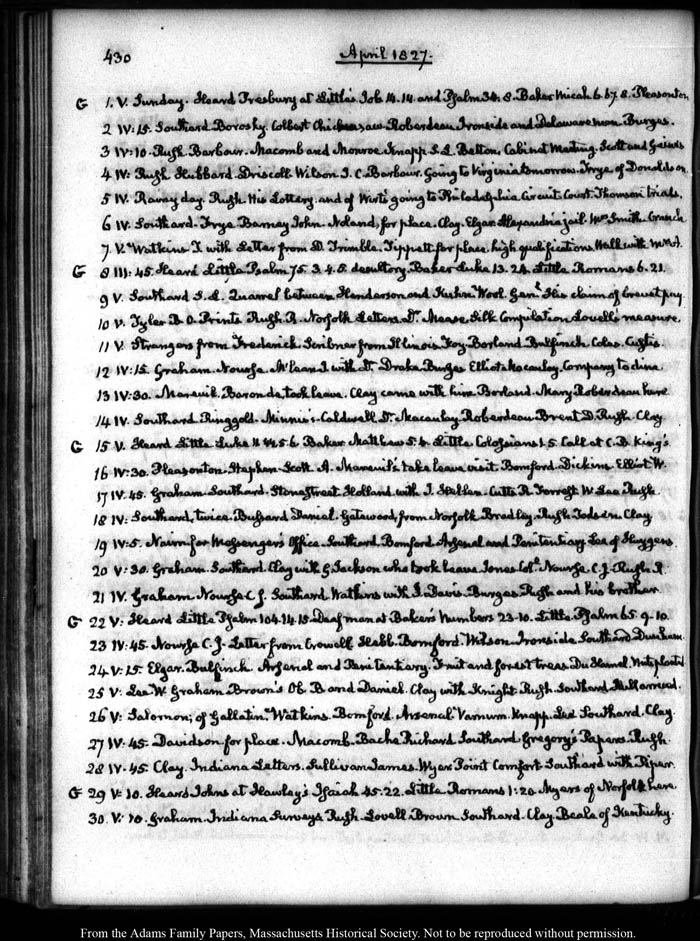 430
April 1827.
G 1. V. Sunday. Heard Presbury at Little's Job 14.14. and Psalm 34. 8. Baker Micah 6. 6.7.8. Pleasonton
2 IV:15. Southard Boroshy. Colbert Chickasaw. Roberdeau. Ironside and Delaware man. Burges.
3 IV:10. Rush. Barbour. Macomb and Monroe. Knapp. S.L. Belton. Cabinet Meeting. Scott and Gaines
4 IV. Rush Hubbard. Driscoll. Wilson J. C. Barbour. Going to Virginia tomorrow. Frye of Donaldson.
5 IV. Rainy day. Rush. His Lottery. and of Wirt's going to Philadelphia Circuit Court. Thomson trials.
6 IV. Southard. Frye Barney John. Noland, for place. Clay. Elgar. Alexandria jail. Mrs Smith.
7. V. Watkins T. with Letter from D. Trimble. Tippett for place. high qualifications. Walk with
G 8 III:45. Heard Little Psalm 75. 3.4.5. desultory. Baker Luke 13. 24. Little Romans 6. 21.
9 V. Southard S.L. Quarrel between Henderson and Kuhn. Wool. Genl. His claim of brevet pay
10 V. Tyler B. O. Prints. Rush R. Norfolk Letters. Dr. Mease. Silk Compilation. Lovell's measure.
11 V. Strangers from Frederick. Scribner from Illinois. Foy. Borland. Bulfinch. Coles. Custis.
12 IV:15. Graham. Nourse. McLean J. with Dr. Drake. Burges Elliot. Macauley. Company to dine.
13 IV:30. Mareuil. Baron de, took leave. Clay came with him. Borland. Mary Roberdeau here
14 IV. Southard. Ringgold. Caldwell Dr. Macauley. Roberdeau. Brent D. Rush. Clay
G 15 V. Heard Little Luke 11. 44.5.6. Baker Matthew 5. 4. Little Colossians 1. 5. Call at C. B. King's.
16 IV:30. Pleasonton Stephen. Scott A. Mareuil's take leave visit. Bomford. Dickins. Elliot W.
17 IV:45. Graham Southard. Stonestreet. Holland with J. Hellen. Cutts R. Forrest. W Lee. Rush.
18 IV: Southard, twice. Bussard Daniel. Gatewood, from Norfolk. Bradley. Rush. Todson. Clay
19 IV:5. Nairn for Messenger's Office. Southard. Bomford. Arsenal and Penitentiary. Lee of Huygens
20 V:30. Graham Southard. Clay with G. Jackson who took leave. Jones Col. Nourse. C.J. Rush R
21 IV. Graham Nourse C J. Southard. Watkins with J. Davis. Burges. Rush and his brother.
G 22 V: Heard Little Psalm 104. 14.15. Deaf man at Baker's Numbers 23. 10. Little. Psalm 65. 9-10.
23 IV:45. Nourse C. J. Letter from Crowell. Hebb. Bomford. Wilson. Ironside. Southard. Dunham.
24 V:15. Elgar. Bulfinch. Arsenal and Penitentiary. Fruit and forest trees. Du Hamel. Nuts planted
25 V: Lee W. Graham. Brown's Ob. B and Daniel. Clay with Knight. Rush. Southard.
26 V: Salomon; of Gallatin. Watkins. Bomford. Arsenal. Varnum. Knapp. Lee. Southard. Clay
27 IV:45. Davidson for place. Macomb. Bache Richard. Southard. Gregory's Papers. Rush.
28 IV.45. Clay. Indiana Letters. Sullivan James. Wyer. Point Comfort. Southard with Piper.
G 29 V:10. Heard Johns at Hawley's Isaiah 45:22. Little Romans 1:20. Myers of Norfolk here
30. V:10. Graham. Indiana Surveys. Rush. Lovell. Brown. Southard. Clay. Beale of Kentucky.
From the Adams Family Papers, Massachusetts Historical Society. Not to be reproduced without permission.